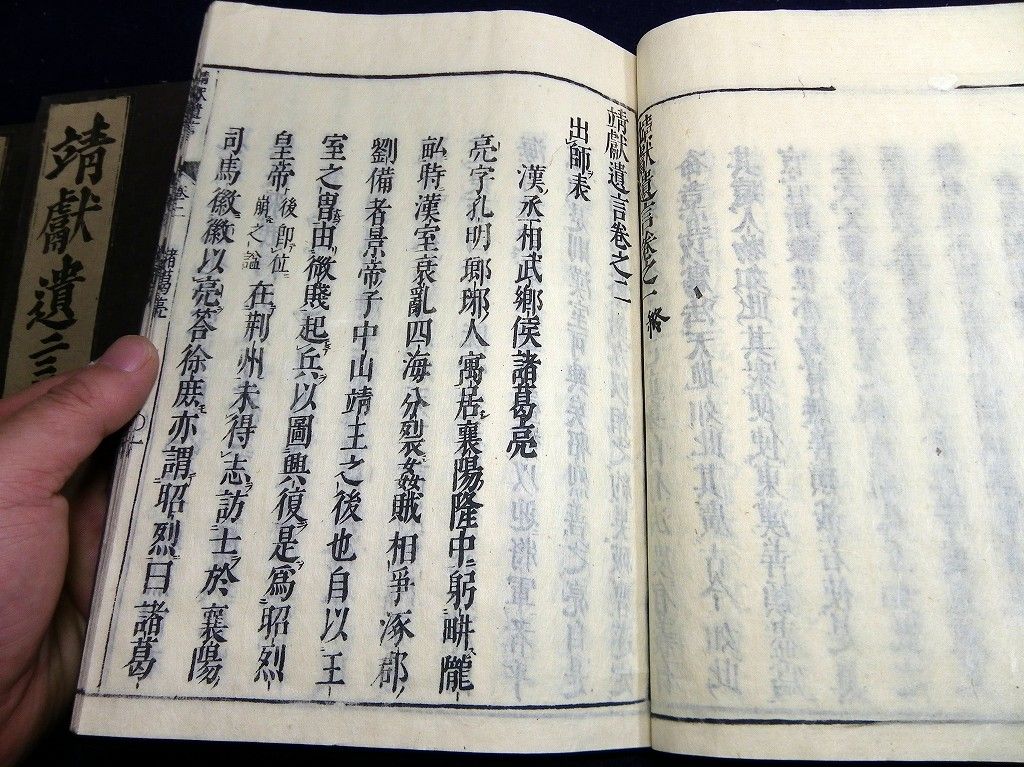 靖獻遺言卷之一終
靖獻遺言卷之二
漢丞相武鄉侯諸葛亮
出師表
亮字孔明瑯琊人寓居襄陽隆中躬畊隴
畝時漢室衰亂四海分裂姦賊相爭涿郡
劉備者景帝子中山靖王之後也自以王
室之冑由微賤起兵以圖興復是爲昭烈
皇帝後即位崩之謚在荆州未得志訪士於襄陽
司馬徽徽以亮答徐庶亦謂昭烈曰諸葛
靖獻遺言
諸葛亮
靖獻遺